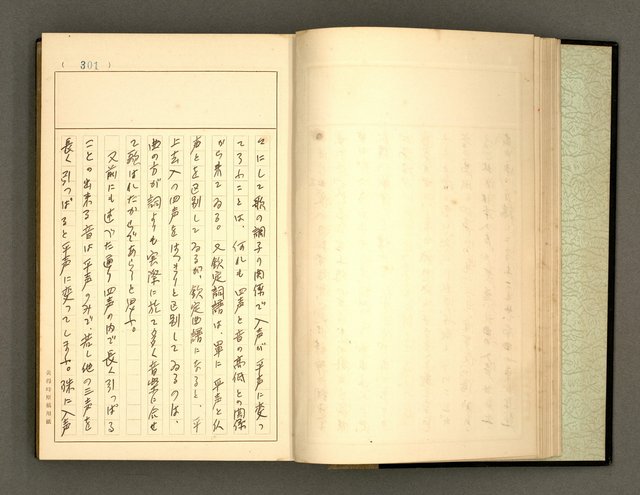 (301)
々にして歌の調子の関係で入声が平声に変つ
てゐることは、何れも四声と音の高低との関係
から来てゐる。又欽定詞譜は、単に平声と仄
声とを区別してゐるが、欽定曲譜になると、平
上去入の四声をはつきりと区別してゐるのは、
曲の方が詞よりも実際に於て多く音楽に合せ
て歌はれたからであらうと思ふ。
又前にも述べた通り四声の内で長く引つぱる
ことの出来る音は平声のみで、若し他の三声を
長く引つぱると平声に変つてしまふ。殊に入声
黄得時原稿用紙